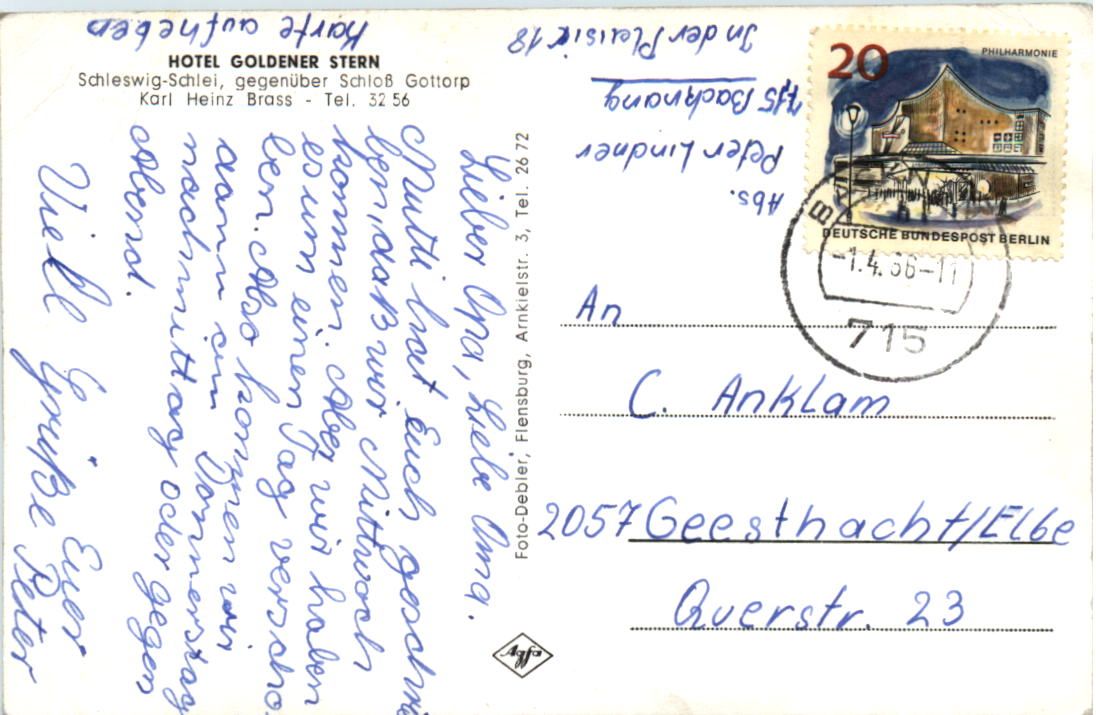 Karte aufheben
HOTEL GOLDENER STERN
Schleswig-Schlei, gegenüber Schloß Gottorp
Karl Heinz Brass - Tel. 32 56
Lieber Opa, Liebe Oma.
Mutti hat Euch geschrie
ben, daß wir Mittwoch
kommen. Aber wir haben
es um einen Tag verscho
ben. Also kommen wir
dann am Donnerstag
nachmittag oder gegen
Abend.
Viele Grüße Euer
Peter
Foto-Debler, Flensburg, Arnkielstr. 3, Tel. 26 72
Agfa
Abs.
Peter Lindner
715 Backnang
In der Plaisir 18
20
PHILHARMONIE
DEUTSCHE BUNDESPOST BERLIN
-1.4.66-11
715
An
C. Anklam
2057 Geesthacht/Elbe
Querstr. 23